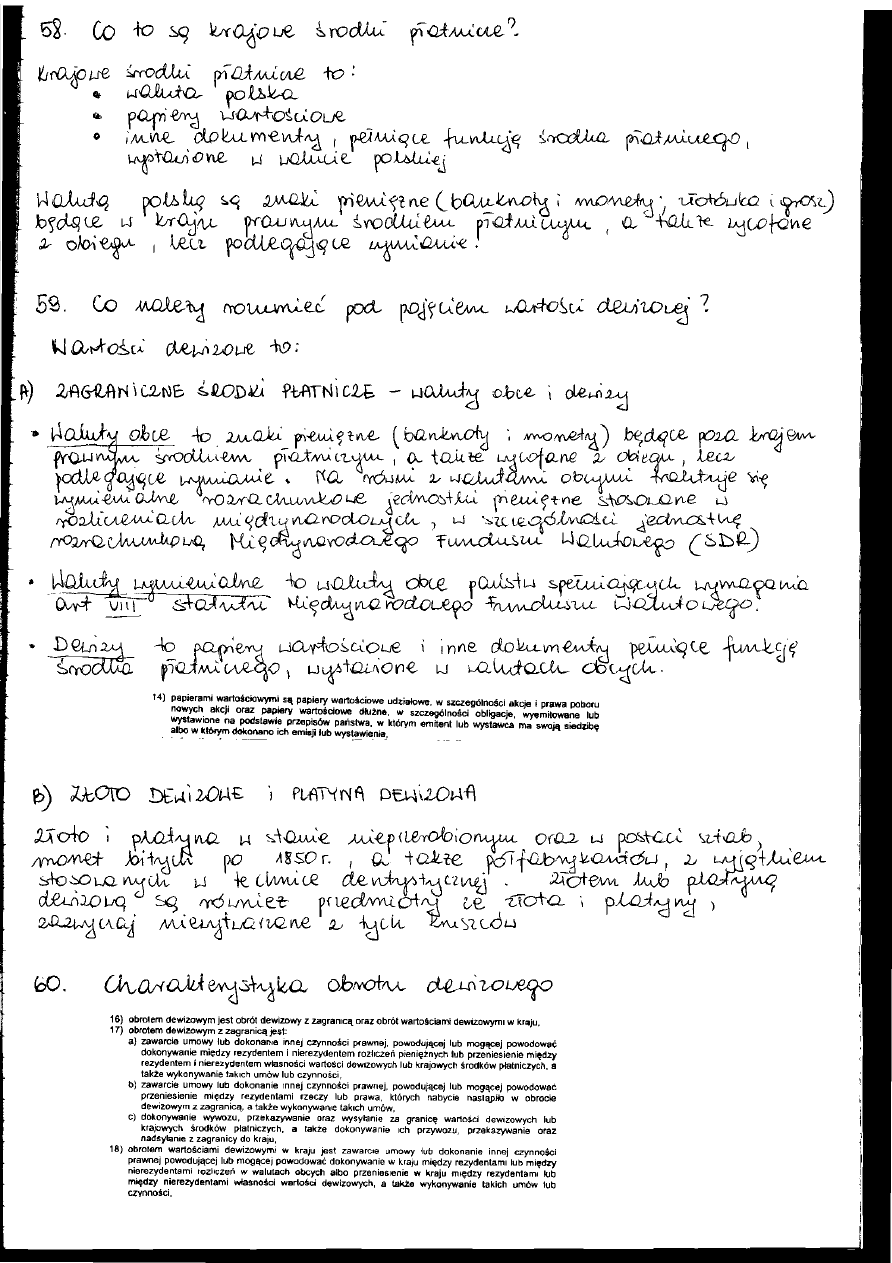 58. Co to są krajowe środki płatnicze?
Krajowe środki płatnicze to:
• waluta polska
• papiery wartościowe
• inne dokumenty, pełniące funkcję środka płatniczego,
wystawione w walucie polskiej
Walutą polską są znaki pieniężne (banknoty i monety; złotówka i grosz)
będące w kraju prawnym środkiem płatniczym, a także wycofane
z obiegu, lecz podlegające wymianie.
59. Co należy rozumieć pod pojęciem wartości dewizowej?
Wartości dewizowe to:
A) ZAGRANICZNE ŚRODKI PŁATNICZE – waluty obce i dewizy
• Waluty obce to znaki pieniężne (banknoty i monety) będące poza krajem
prawnym środkiem płatniczym, a także wycofane z obiegu, lecz
podlegające wymianie. Na równi z walutami obcymi traktuje się
wymienialne rozrachunkowe jednostki pieniężne stosowane w
rozliczeniach międzynarodowych, w szczególności jednostkę
rozrachunkową Międzynarodowego Funduszu Walutowego (SDR)
• Waluty wymienialne to waluty obce państw spełniających wymagania
art VIII statutu Międzynarodowego Funduszu Walutowego.
• Dewizy to papiery wartościowe i inne dokumenty pełniące funkcję
środka płatniczego, wystawione w walutach obcych.
14) papierami wartościowymi są papiery wartościowe udziałowe, w szczególności akcje i prawa poboru
nowych akcji oraz papiery wartościowe dłużne, w szczególności obligacje, wyemitowane lub
wystawione na podstawie przepisów państwa, w którym emitent lub wystawca ma swoją siedzibę
albo w którym dokonano ich emisji lub wystawienia,
B) ZŁOTO DEWIZOWE i PLATYNA DEWIZOWA
Złoto i platyna w stanie nieprzerobionym oraz w postaci sztab,
monet bitych po 1850 r., a także półfabrykantów, z wyjątkiem
stosowanych w technice dentystycznej. Złotem lub platyną
dewizową są również przedmioty ze złota i platyny,
zazwyczaj niewytwarzane z tych kruszców
60. Charakterystyka obrotu dewizowego
16) obrotem dewizowym jest obrót dewizowy z zagranicą oraz obrót wartościami dewizowymi w kraju,
17) obrotem dewizowym z zagranicą jest:
a) zawarcie umowy lub dokonanie innej czynności prawnej, powodującej lub mogącej powodować
dokonywanie między rezydentem i nierezydentem rozliczeń pieniężnych lub przeniesienie między
rezydentem i nierezydentem własności wartości dewizowych lub krajowych środków płatniczych, a
także wykonywanie takich umów lub czynności,
b) zawarcie umowy lub dokonanie innej czynności prawnej, powodującej lub mogącej powodować
przeniesienie między rezydentami rzeczy lub prawa, których nabycie nastąpiło w obrocie
dewizowym z zagranicą, a także wykonywanie takich umów,
c) dokonywanie wywozu, przekazywanie oraz wysyłanie za granicę wartości dewizowych lub
krajowych środków płatniczych, a także dokonywanie ich przywozu, przekazywanie oraz
nadsyłanie z zagranicy do kraju,
18) obrotem wartościami dewizowymi w kraju jest zawarcie umowy lub dokonanie innej czynności
prawnej powodującej lub mogącej powodować dokonywanie w kraju między rezydentami lub między
nierezydentami rozliczeń w walutach obcych albo przeniesienie w kraju między rezydentami lub
między nierezydentami własności wartości dewizowych, a także wykonywanie takich umów lub
czynności,